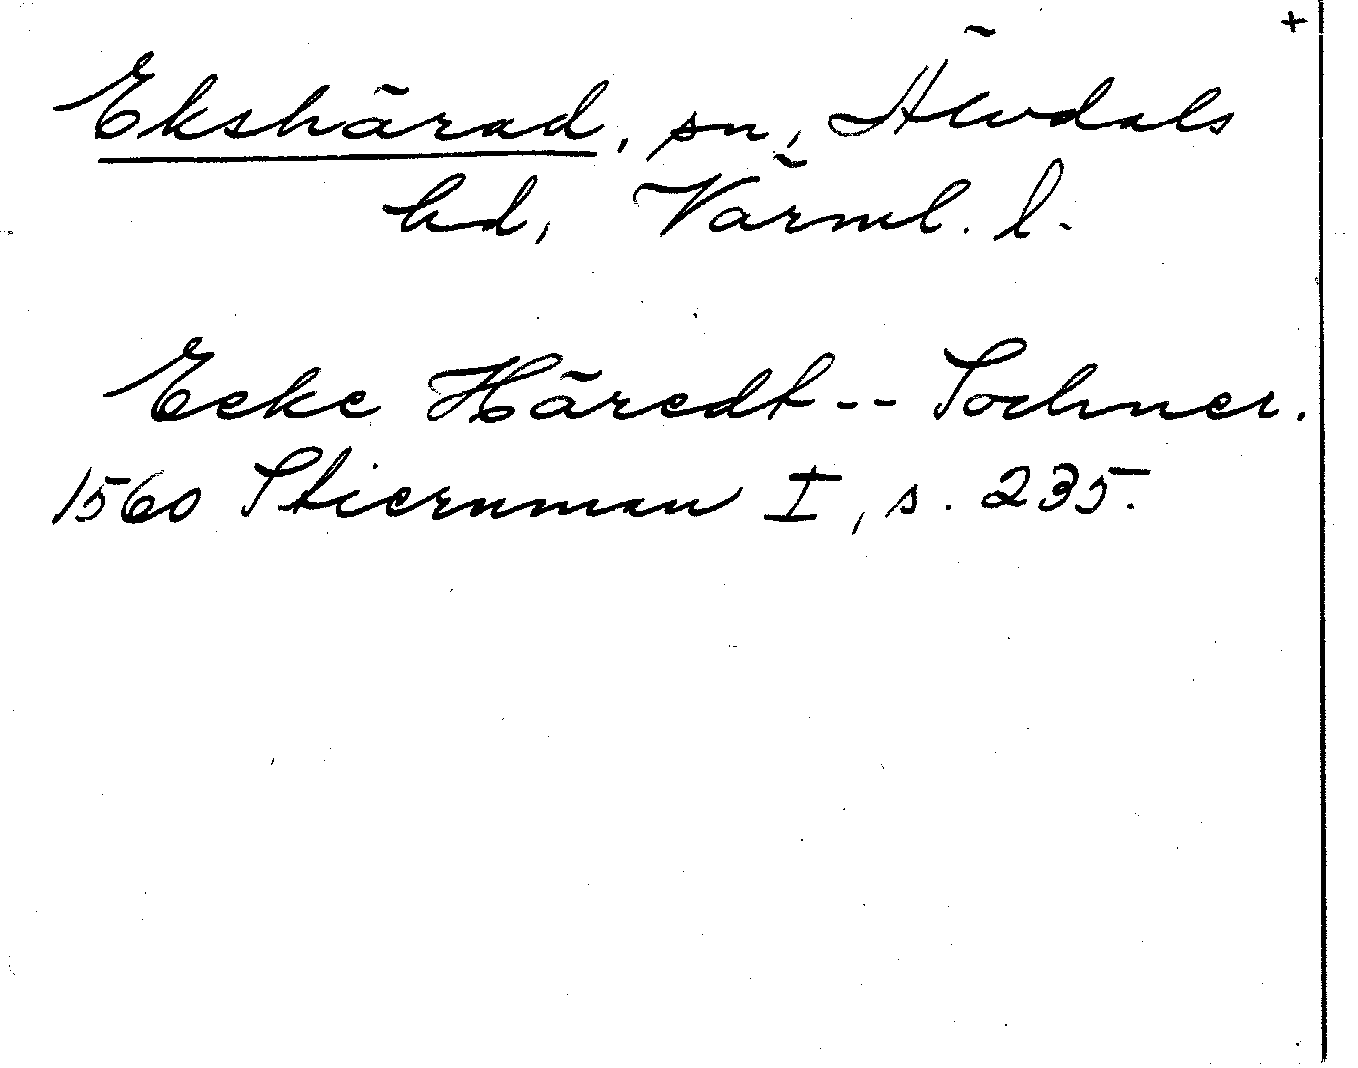 +
Ekshärad, sn, Älvdals
hd, Värml. l.
Ecke Häredt -- Sochner.
1560 Stiernman I, s. 235.